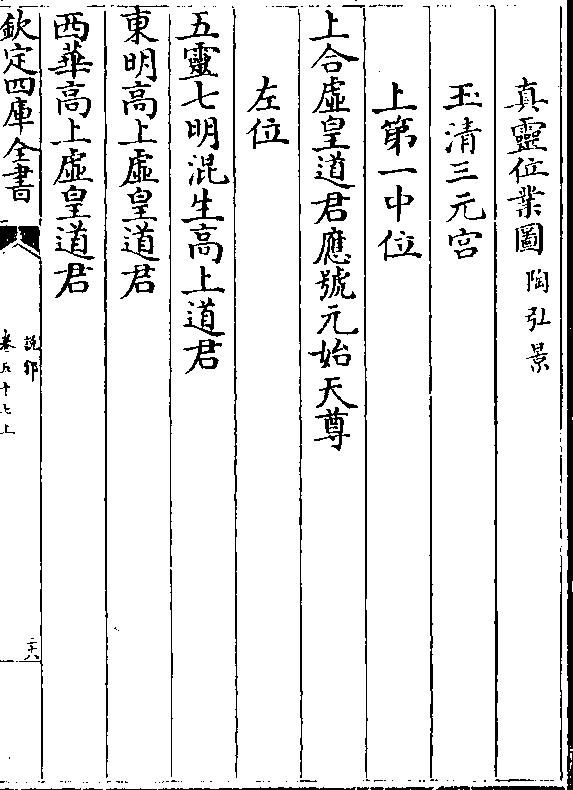 真靈位業圖 陶弘景
玉清三元宮
上第一中位
上合虛皇道君應號元始天尊
左位
五靈七明混生高上道君
東明高上虛皇道君
西華高上虛皇道君
欽定四庫全書
說郛
卷五十七上
二六